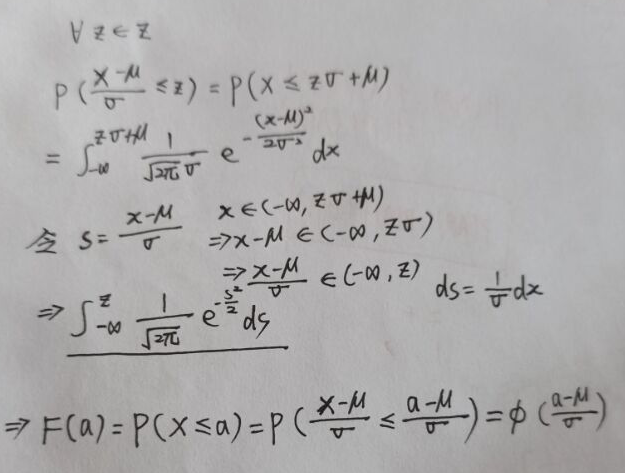 ∀ z ∈ z
P(\frac{X-μ}{σ} ≤ z) = P(X ≤ zσ+μ)
= ∫_{-∞}^{zσ+μ} \frac{1}{\sqrt{2π}σ} e^{-\frac{(x-μ)^2}{2σ^2}} dx
令 s = \frac{x-μ}{σ} x ∈ (-∞, zσ+μ)
⇒ x-μ ∈ (-∞, zσ)
⇒ \frac{x-μ}{σ} ∈ (-∞, z) ds = \frac{1}{σ} dx
⇒ ∫_{-∞}^{z} \frac{1}{\sqrt{2π}} e^{-\frac{s^2}{2}} ds
⇒ F(a) = P(X ≤ a) = P(\frac{X-μ}{σ} ≤ \frac{a-μ}{σ}) = φ(\frac{a-μ}{σ})